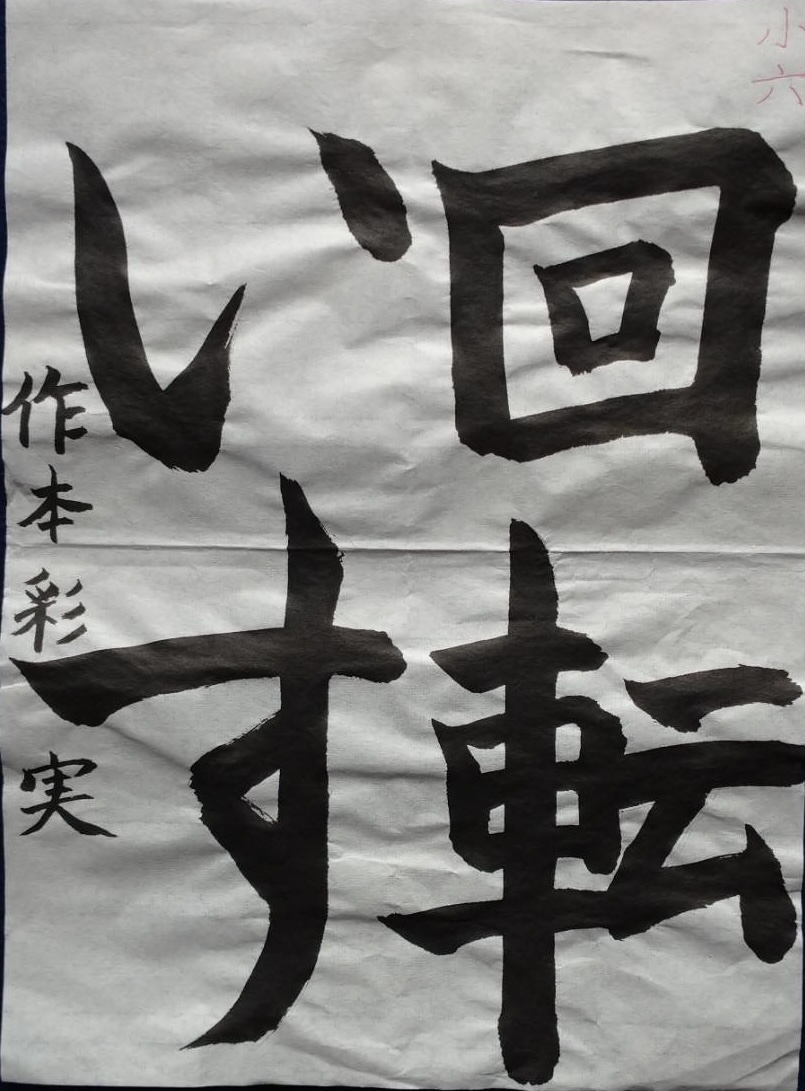 小六
回転
いす
作本彩実